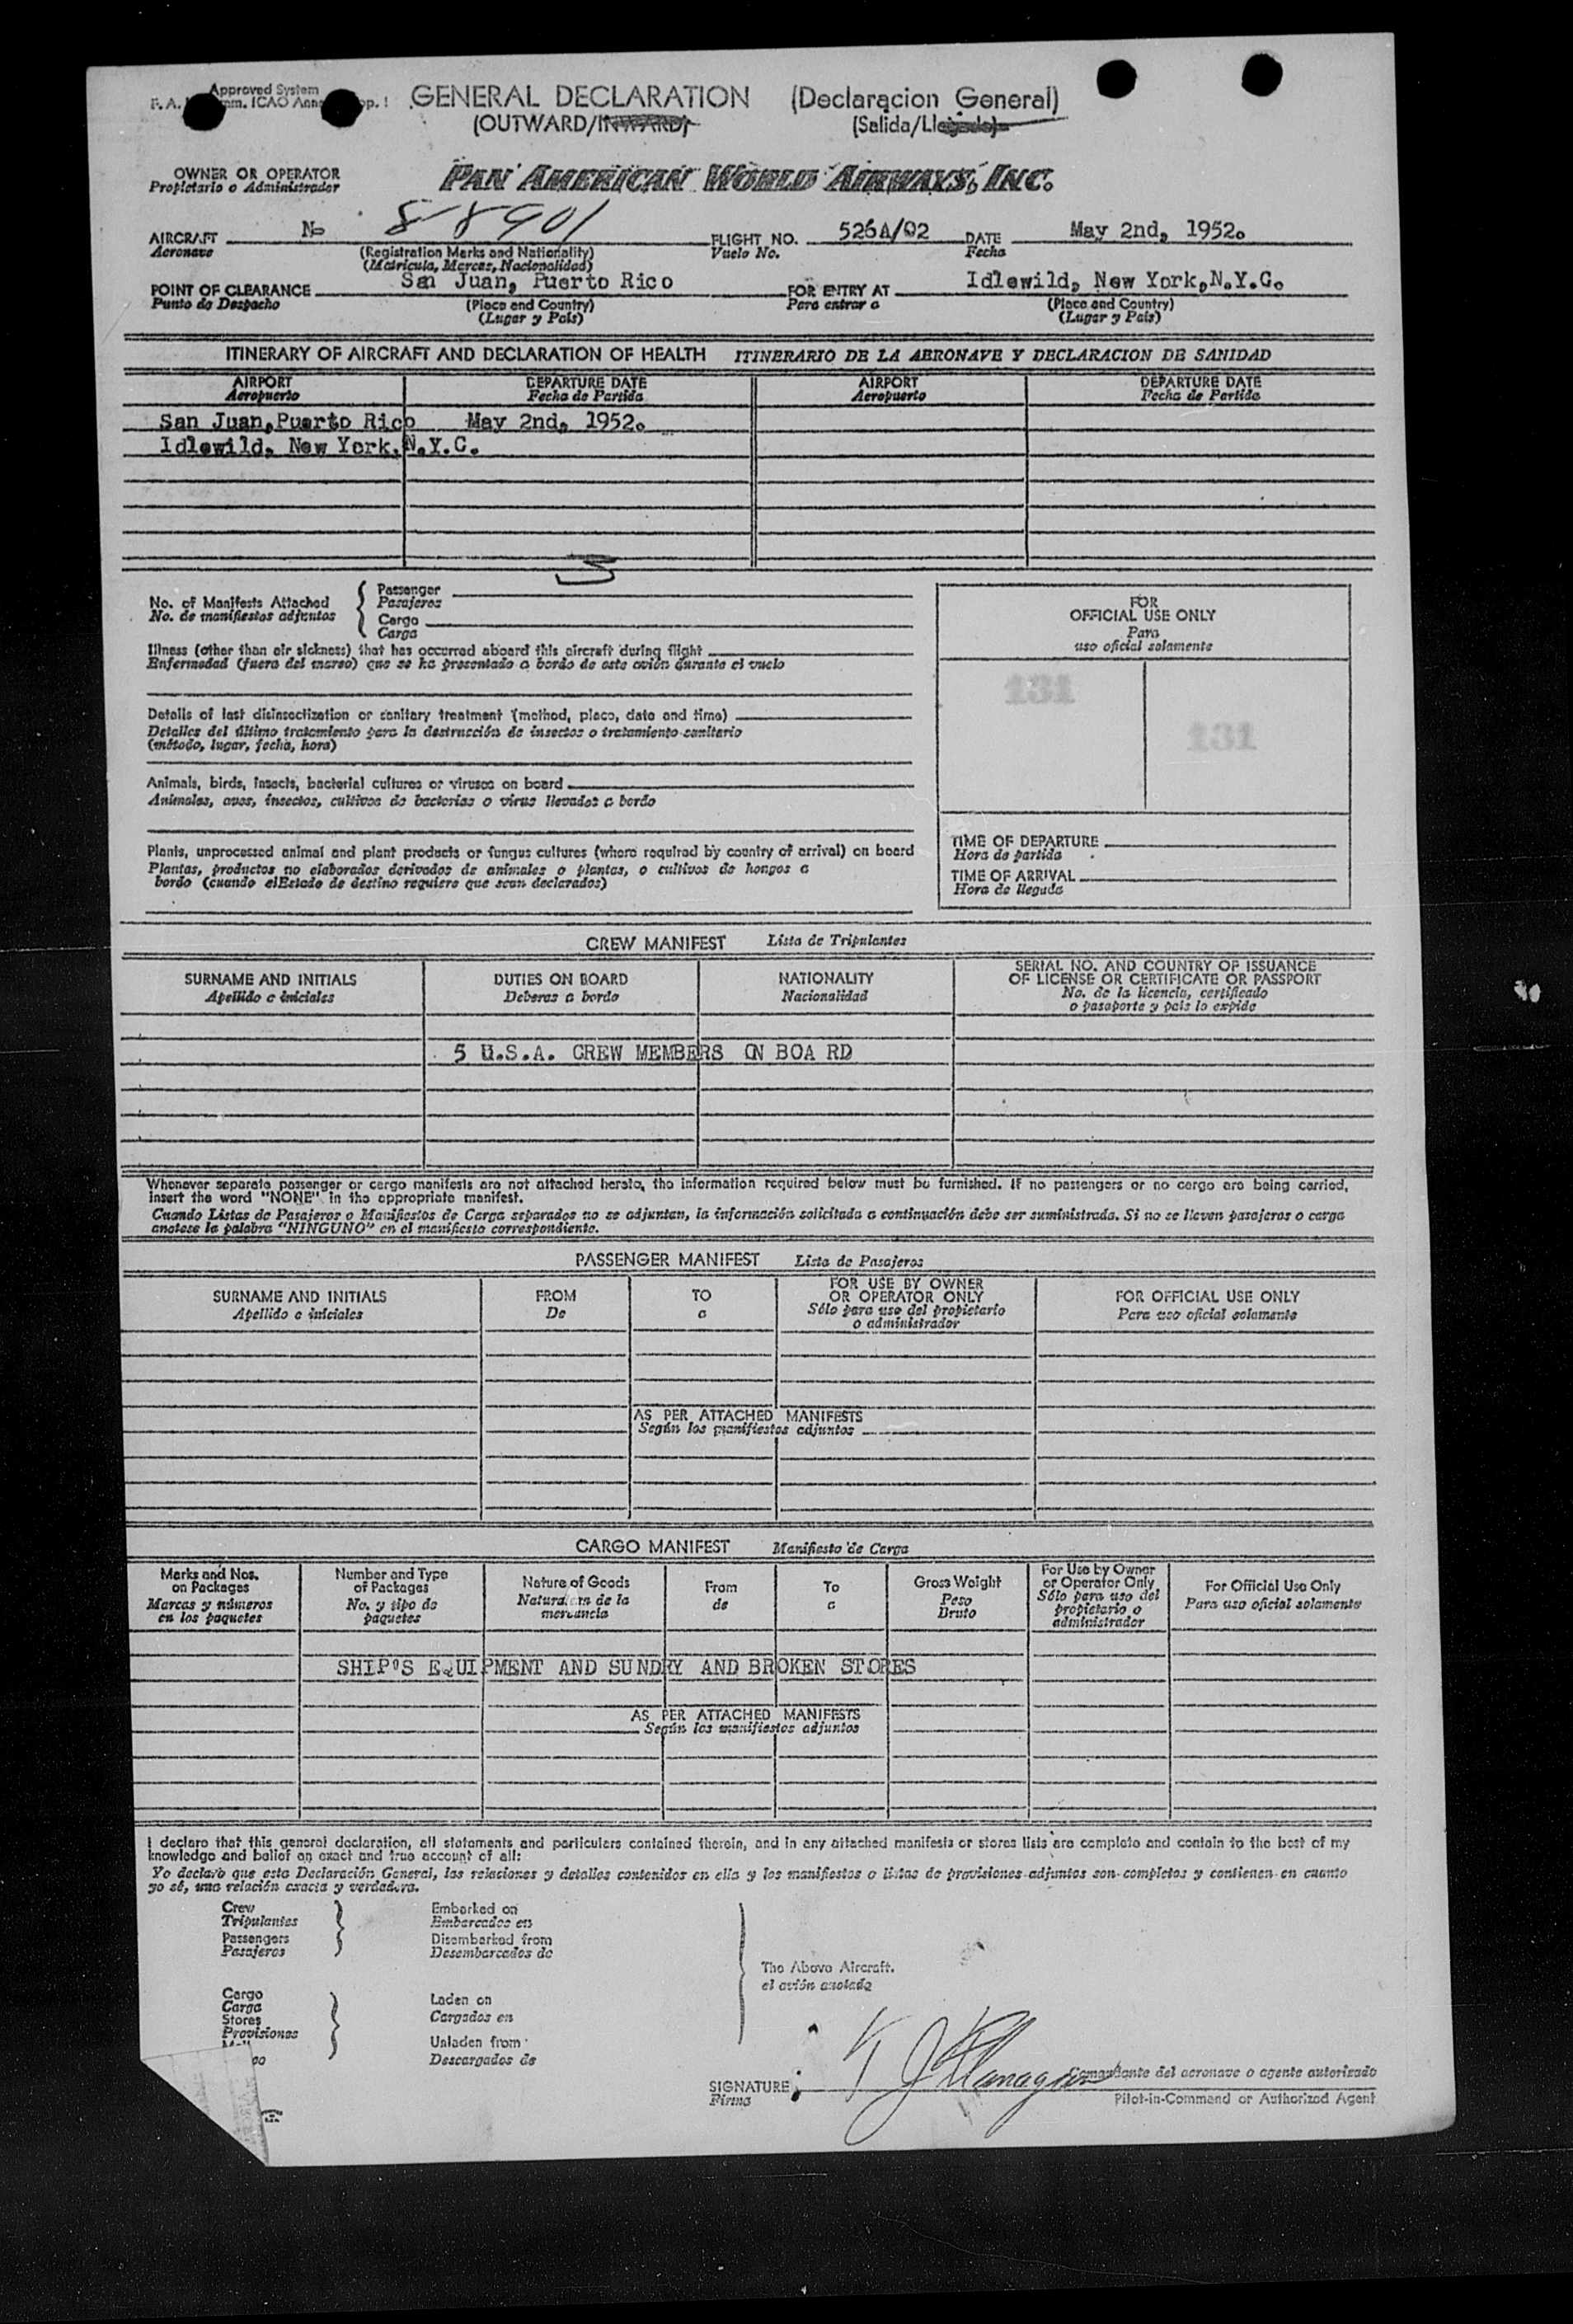 Approved System
GENERAL DECLARATION (Declaracion General)
(OUTWARD/INWARD) (Salida/Llegada)
OWNER OR OPERATOR
Propietario o Administrador
PAN AMERICAN WORLD AIRWAYS, INC.
AIRCRAFT No 88901 FLIGHT NO. 526A/02 DATE May 2nd, 1952.
Aeronave (Registration Marks and Nationality) Vuelo No. Fecha
(Matricula, Marcas, Nacionalidad)
POINT OF CLEARANCE San Juan, Puerto Rico FOR ENTRY AT Idlewild, New York,N.Y.C.
Punto de Despacho (Place and Country) Para entrar a (Place and Country)
(Lugar y País) (Lugar y País)
ITINERARY OF AIRCRAFT AND DECLARATION OF HEALTH ITINERARIO DE LA AERONAVE Y DECLARACION DE SANIDAD
AIRPORT DEPARTURE DATE AIRPORT DEPARTURE DATE
Aeropuerto Fecha de Partida Aeropuerto Fecha de Partida
San Juan,Puerto Rico May 2nd, 1952.
Idlewild, New York,N.Y.C.
No. of Manifests Attached
No. de manifiestos adjuntos
Passenger
Pasajeros
Cargo
Carga
Illness (other than air sickness) that has occurred aboard this aircraft during flight
Enfermedad (fuera del mareo) que se ha presentado a bordo de este avión durante el vuelo
Details of last disinsectization or sanitary treatment (method, place, date and time)
Detalles del último tratamiento para la destrucción de insectos o tratamiento sanitario
(método, lugar, fecha, hora)
Animals, birds, insects, bacterial cultures or viruses on board
Animales, aves, insectos, cultivos de bacterias o virus llevados a bordo
Plants, unprocessed animal and plant products or fungus cultures (where required by country of arrival) on board
Plantas, productos no elaborados derivados de animales o plantas, o cultivos de hongos a
bordo (cuando elEstado de destino requiere que sean declarados)
FOR
OFFICIAL USE ONLY
Para
uso oficial solamente
131
131
TIME OF DEPARTURE
Hora de partida
TIME OF ARRIVAL
Hora de llegada
CREW MANIFEST Lista de Tripulantes
SURNAME AND INITIALS DUTIES ON BOARD NATIONALITY SERIAL NO. AND COUNTRY OF ISSUANCE
OF LICENSE OR CERTIFICATE OR PASSPORT
Apellido e iniciales Deberes a bordo Nacionalidad No. de la licencia, certificado
o pasaporte y país lo expide
5 U.S.A. CREW MEMBERS ON BOA RD
Whenever separate passenger or cargo manifests are not attached hereto, the information required below must be furnished. If no passengers or no cargo are being carried,
insert the word "NONE" in the appropriate manifest.
Cuando Listas de Pasajeros o Manifiestos de Carga separados no se adjuntan, la información solicitada a continuación debe ser suministrada. Si no se llevan pasajeros o carga
anotese la palabra "NINGUNO" en el manifiesto correspondiente.
PASSENGER MANIFEST Lista de Pasajeros
SURNAME AND INITIALS FROM TO FOR USE BY OWNER
OR OPERATOR ONLY FOR OFFICIAL USE ONLY
Apellido e iniciales De a Sólo para uso del propietario
o administrador Para uso oficial solamente
AS PER ATTACHED MANIFESTS
Según los manifiestos adjuntos
CARGO MANIFEST Manifiesto de Carga
Marks and Nos.
on Packages
Marcas y números
en los paquetes
Number and Type
of Packages
No. y tipo de
paquetes
Nature of Goods
Naturaleza de la
mercancía
From
de
To
a
Gross Weight
Peso
Bruto
For Use by Owner
or Operator Only
Sólo para uso del
propietario o
administrador
For Official Use Only
Para uso oficial solamente
SHIP'S EQUIPMENT AND SUNDRY AND BROKEN STORES
AS PER ATTACHED MANIFESTS
Según los manifiestos adjuntos
I declare that this general declaration, all statements and particulars contained therein, and in any attached manifests or stores lists are complete and contain to the best of my
knowledge and belief an exact and true account of all:
Yo declaro que esta Declaración General, las relaciones y detalles contenidos en ella y los manifiestos o listas de provisiones adjuntos son completos y contienen en cuanto
yo sé, una relación exacta y verdadera.
Crew
Tripulantes
Passengers
Pasajeros
Embarked on
Embarcados en
Disembarked from
Desembarcados de
Cargo
Carga
Stores
Provisiones
Laden on
Cargados en
Unladen from
Descargados de
The Above Aircraft.
el avión anotado
SIGNATURE Flanagan Comandante del aeronave o agente autorizado
Firma Pilot-in-Command or Authorized Agent